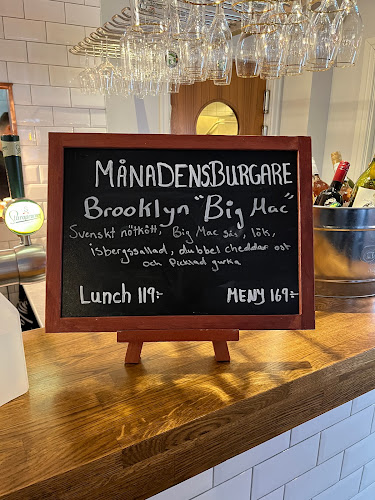 MÅNADENS BURGARE
Brooklyn "Big Mac"
Svenskt nötkött, Big Mac sås, lök,
isbergssallad, dubbel cheddar ost
och Picklad gurka
Lunch 119:- MENY 169:-